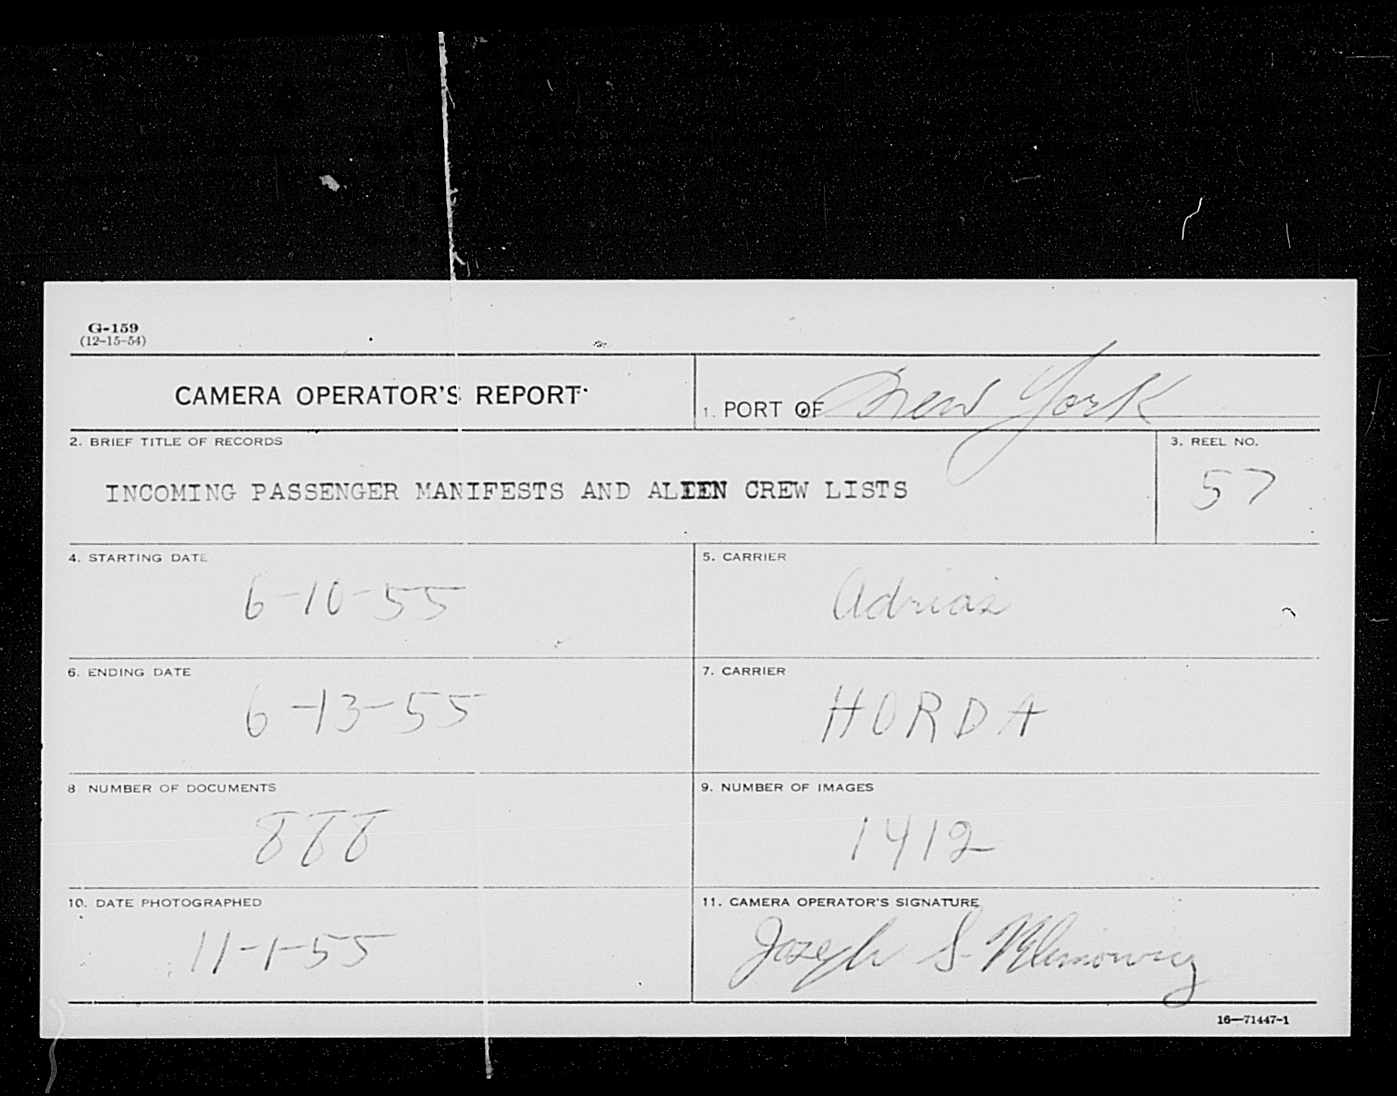 G-159
(12-15-54)
CAMERA OPERATOR'S REPORT
1. PORT OF New York
2. BRIEF TITLE OF RECORDS
INCOMING PASSENGER MANIFESTS AND ALIEN CREW LISTS
3. REEL NO.
57
4. STARTING DATE
6-10-55
5. CARRIER
Adrias
6. ENDING DATE
6-13-55
7. CARRIER
HORDA
8 NUMBER OF DOCUMENTS
888
9. NUMBER OF IMAGES
1412
10. DATE PHOTOGRAPHED
11-1-55
11. CAMERA OPERATOR'S SIGNATURE
Joseph S.
16—71447-1